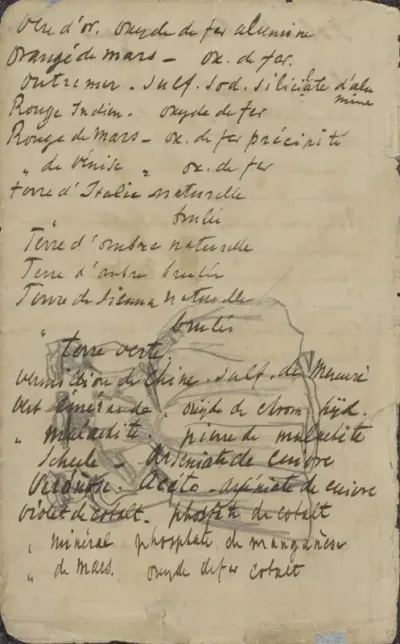 Ocre d'or. oxyde de fer alumine
Orangé de mars - ox. de fer.
outremer. sulf. sod. siliciate d'alu
mine
Rouge Indien. oxyde de fer
Rouge de Mars - ox. de fer précipité
" de Vénise " ox. de fer
terre d'Italie naturelle
" brulée
Terre d'ombre naturelle
Terre d'ombre brulée
Terre de Sienna naturelle
" brulée
" terre verte
Vermillion de Chine. sulf. de Mercure
Vert émeraude. oxyde de chrom. hyd.
" malachite. pierre de malachite
Scheele - Arséniate de cuivre
Véronèse. Acéto-arséniate de cuivre
Violet de cobalt. phosphate de cobalt
" minéral phosphate de manganèse
" de Mars. oxyde de fer cobalt